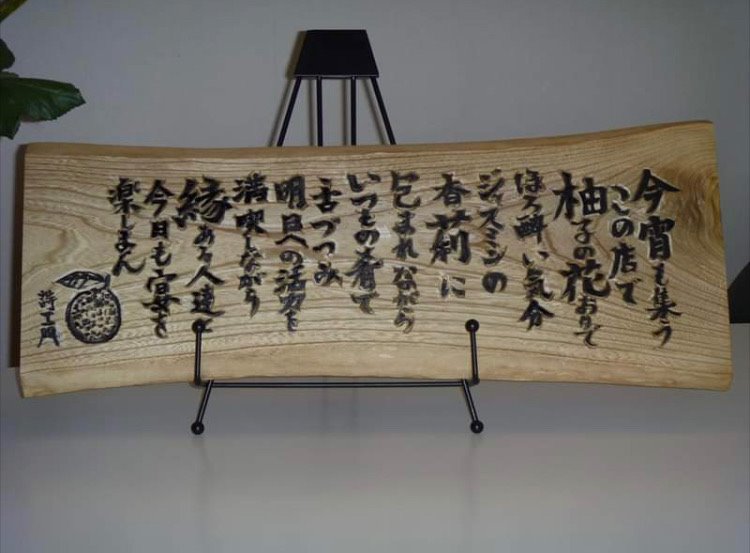 今宵も集う
この店で
柚子の花ありて
ほろ酔い気分
ジャスミンの
香莉に
包まれながら
いつもの肴で
舌づつみ
明日への活力を
満喫しながら
縁ある人達と
今日も宴を
楽しまん